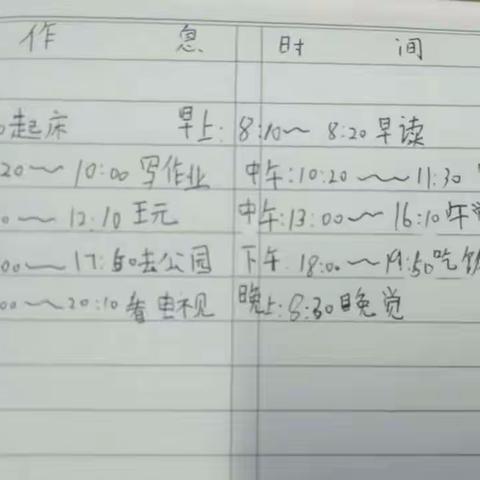 作 息 时 间
起床 早上: 8:10～ 8:20 早读
20～ 10:00 写作业 中午:10:20 ～～ 11:30
～ 12:10 王元 中午:13:00～ 16:10 午
00～ 17:50去公园 下午 18:00～19:50吃饭
00～20:10看电视 晚上:8:30 晚觉